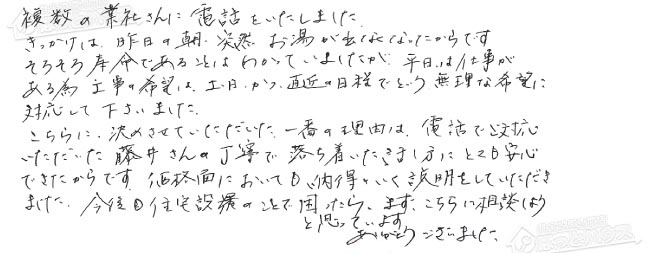 複数の業社さんに電話をいたしました。
きっかけは、昨日の朝、突然お湯が出なくなったからです
そろそろ寿命であることはわかっていましたが、平日は仕事が
ある為、工事の希望は、土日、かつ、直近の日程でという無理な希望に
対応して下さいました。
こちらに、決めさせていただいた一番の理由は、電話でご対応
いただいた藤井さんの丁寧で落ち着いた話し方にとても安心
できたからです。価格面においても、納得のいく説明をしていただき
ました。今後も住宅設備のことで困ったら、まず、こちらに相談しよう
と思っています。
ありがとうございました。